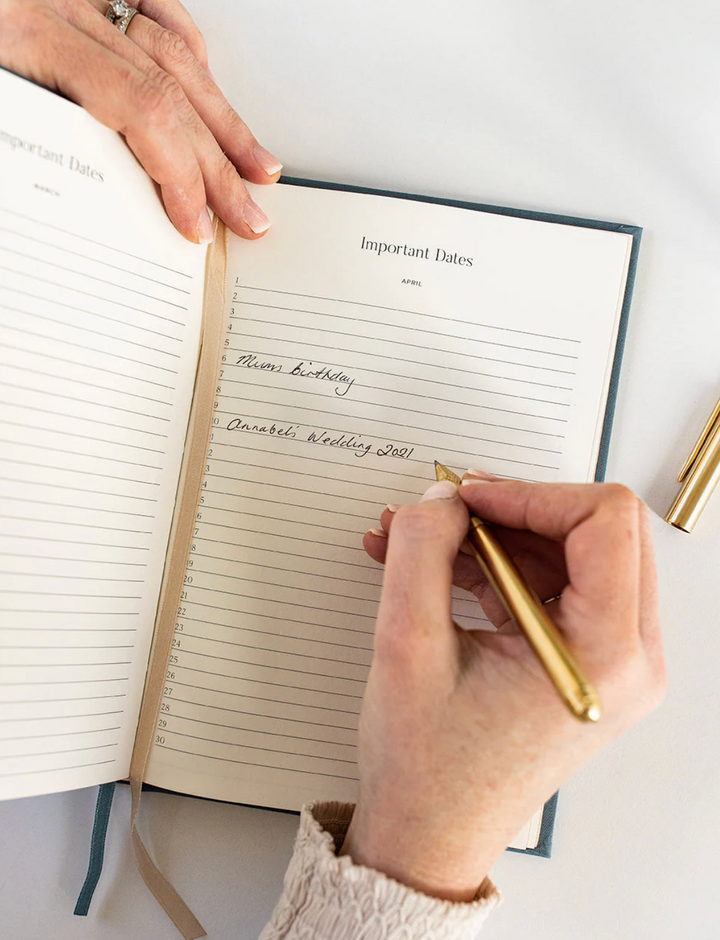 mportant Dates
MARCH
Important Dates
APRIL
1
2
3
4
5
6 Mums birthday
7
8
9
10 Annabel's Wedding 2021
1
2
3
4
5
6
7
8
9
20
21
22
23
24
25
26
27
28
29
30